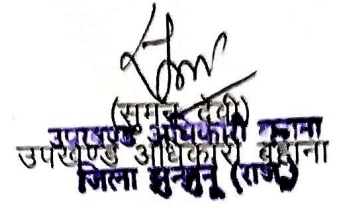 (सुमन देवी)
उपखण्ड अधिकारी बुहाना
उपखण्ड अधिकारी बुहाना
जिला झुन्झुनू (राज.)